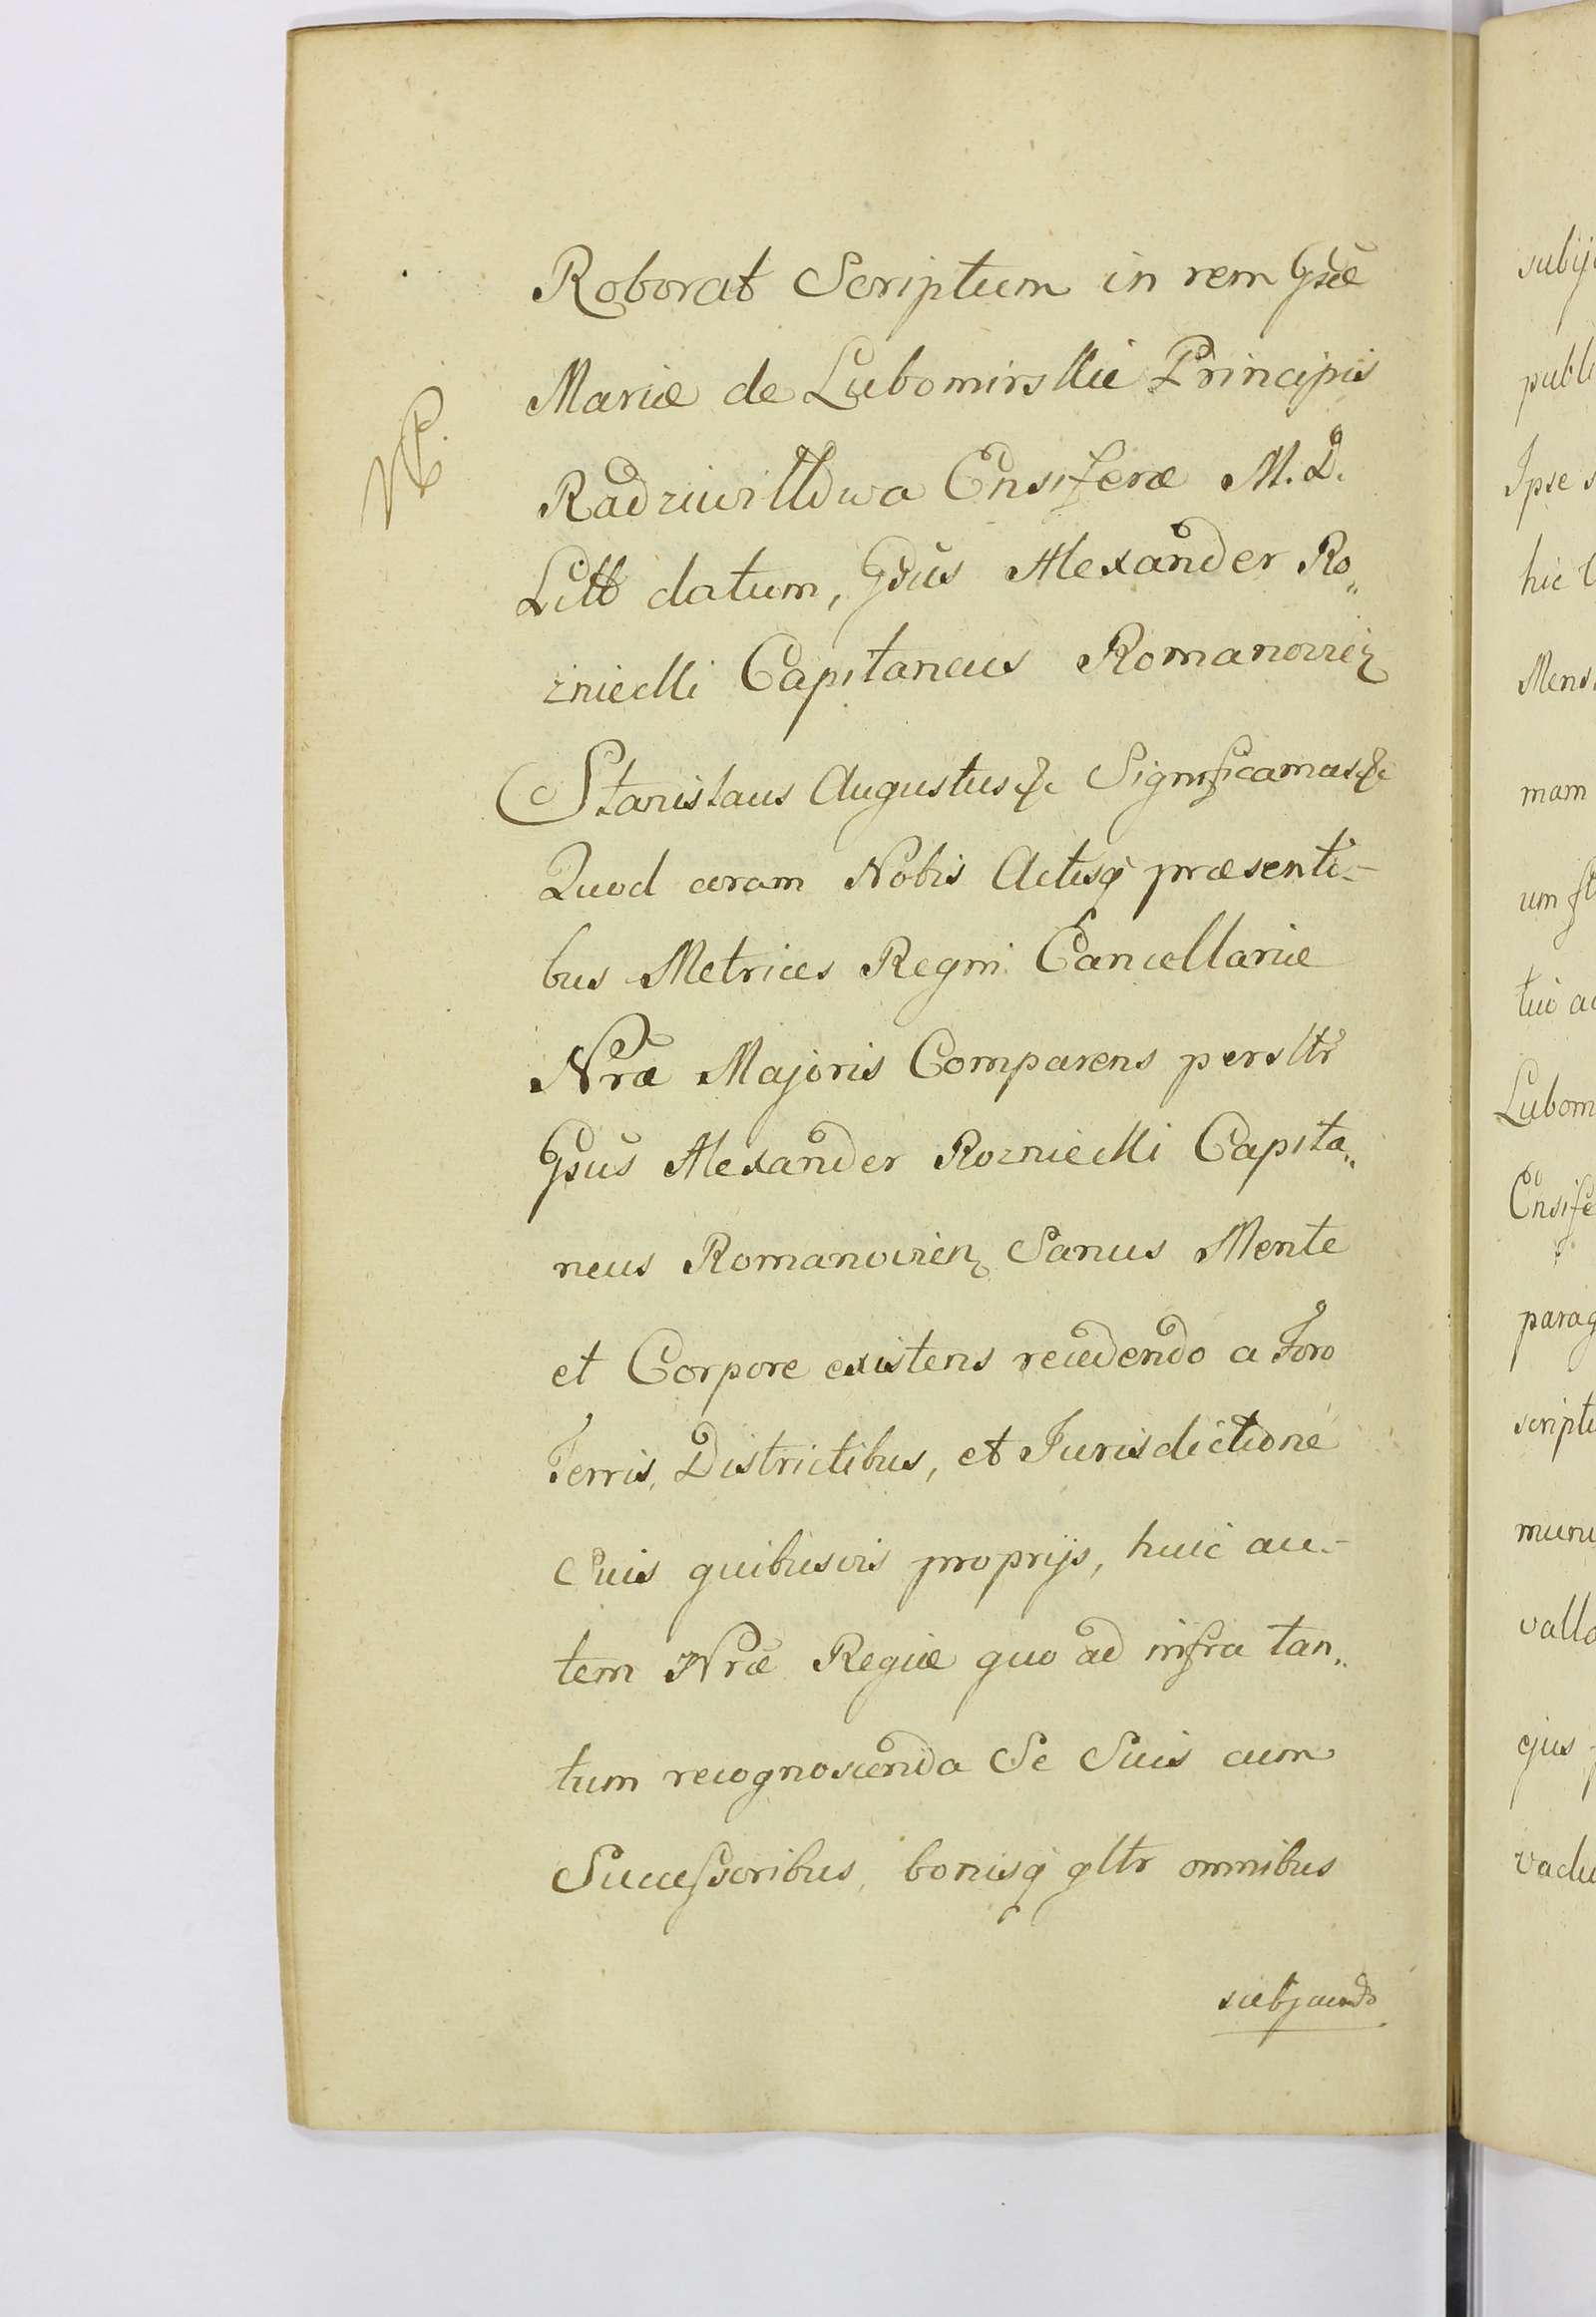 Roborat Scriptum in rem Gsæ
Mariæ de Lubomirskie Principis
Radziwiłłowa Ensiferæ M. D.
Litt datum, Gsus Alexander Ro„
zniecki Capitaneus Romanovien
Stanislaus Augustus &c Significamus &c
Quod coram Nobis Actisq præsenti-
bus Metrices Regni Cancellariæ
Nræ Majoris Comparens persltr
Gsus Alexander Rozniecki Capita„
neus Romanovien Sanus Mente
et Corpore existens recedendo a Foro
Terris, Districtibus, et Jurisdictione
Suis quibusvis proprijs, huic au-
tem Nræ Regiæ quo ad infra tan„
tum recognoscenda Se Suis cum
Successoribus, bonisq gltr omnibus
subjaciendo
subij
publi
Ipse s
hic
Mens
mam
um
tuo ac
Lubom
Ensife
parag
scriptu
muni
valla
ejus
vadu